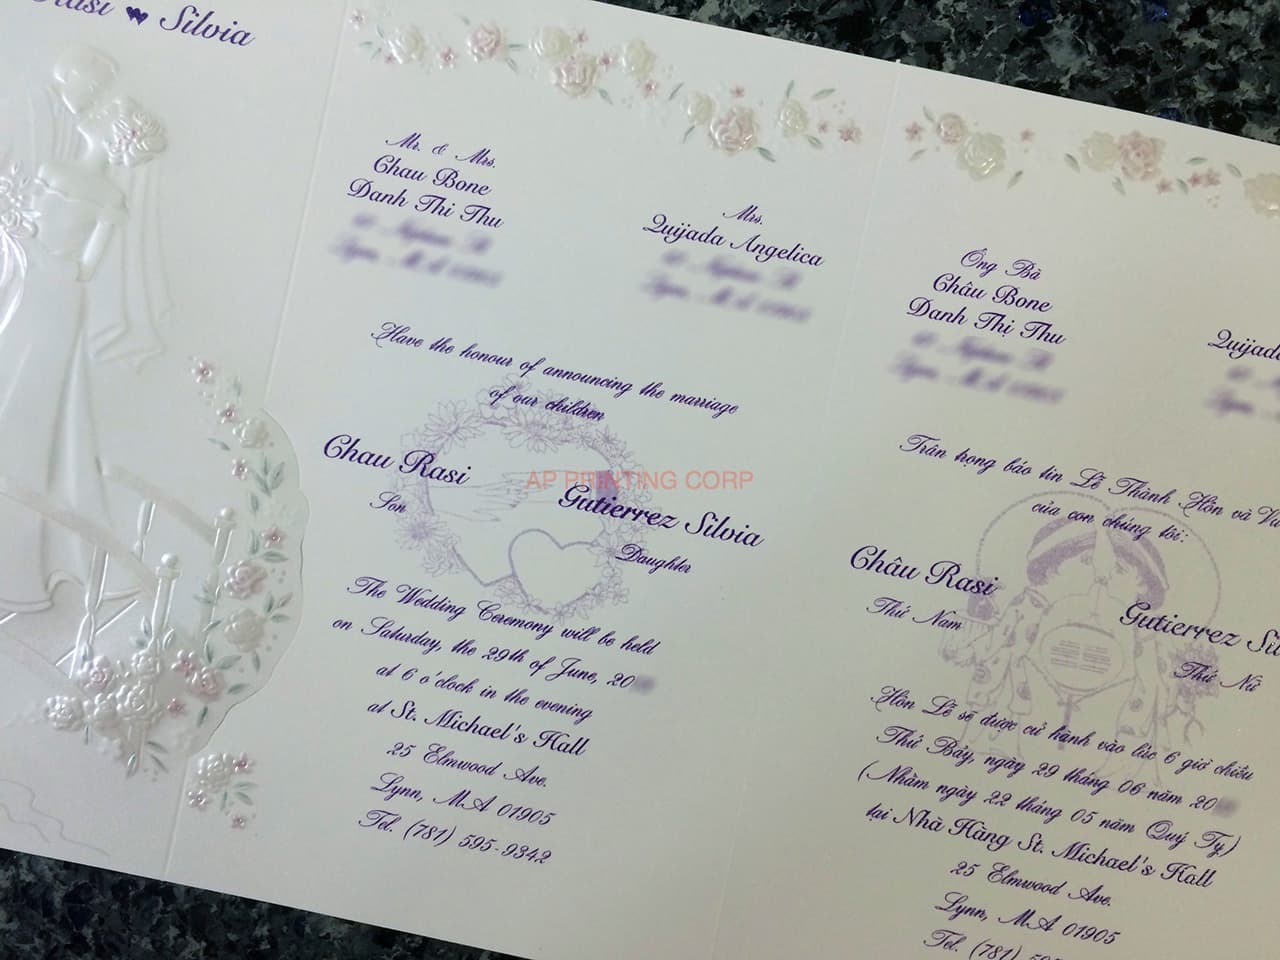 Rasi Silvia
Mr. & Mrs.
Chau Bone
Danh Thi Thu
Mrs.
Quijada Angelica
Have the honour of announcing the marriage
of our children
Chau Rasi
Son
Gutierrez Silvia
Daughter
The Wedding Ceremony will be held
on Saturday, the 29th of June, 20
at 6 o'clock in the evening
at St. Michael's Hall
25 Elmwood Ave.
Lynn, MA 01905
Tel. (781) 595-9342
AP PRINTING CORP
Ông Bà
Châu Bone
Danh Thị Thu
Trân trọng báo tin Lễ Thành Hôn và
của con chúng tôi:
Châu Rasi
Thứ Nam
Gutierrez
Thứ Nữ
Hôn Lễ sẽ được cử hành vào lúc 6 giờ chiều
Thứ Bảy, ngày 29 tháng 06 năm 20
(Nhằm ngày 22 tháng 05 năm Quý Tỵ)
tại Nhà Hàng St. Michael's Hall
25 Elmwood Ave.
Lynn, MA 01905
Tel. (781)